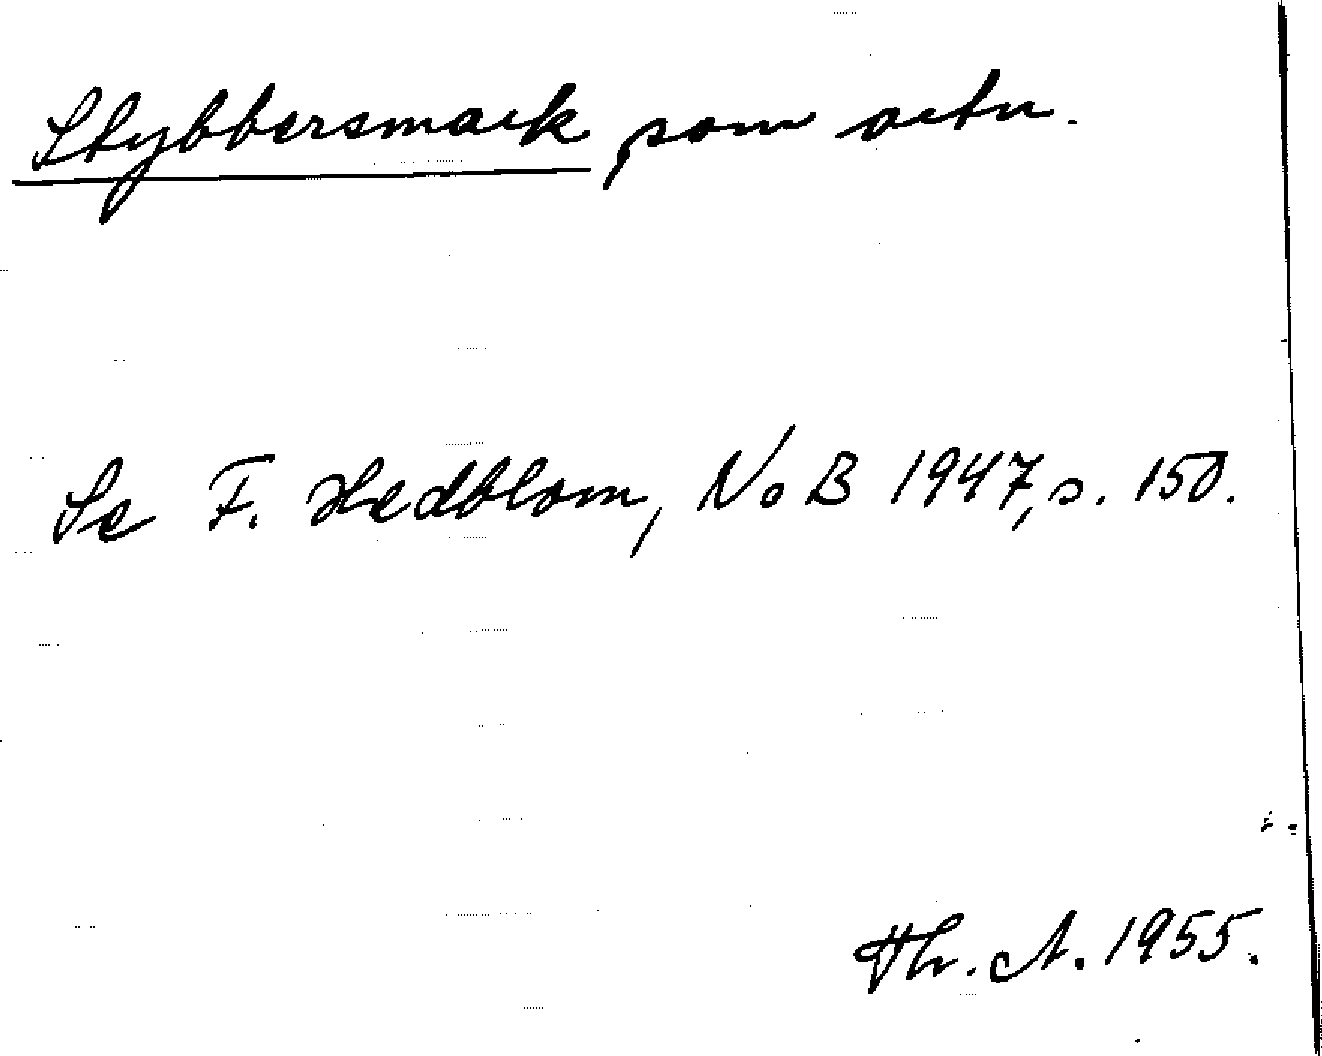 Stybbersmark som ortn.
Se F. Hedblom, NoB 1947, s. 150.
Th. A. 1955.